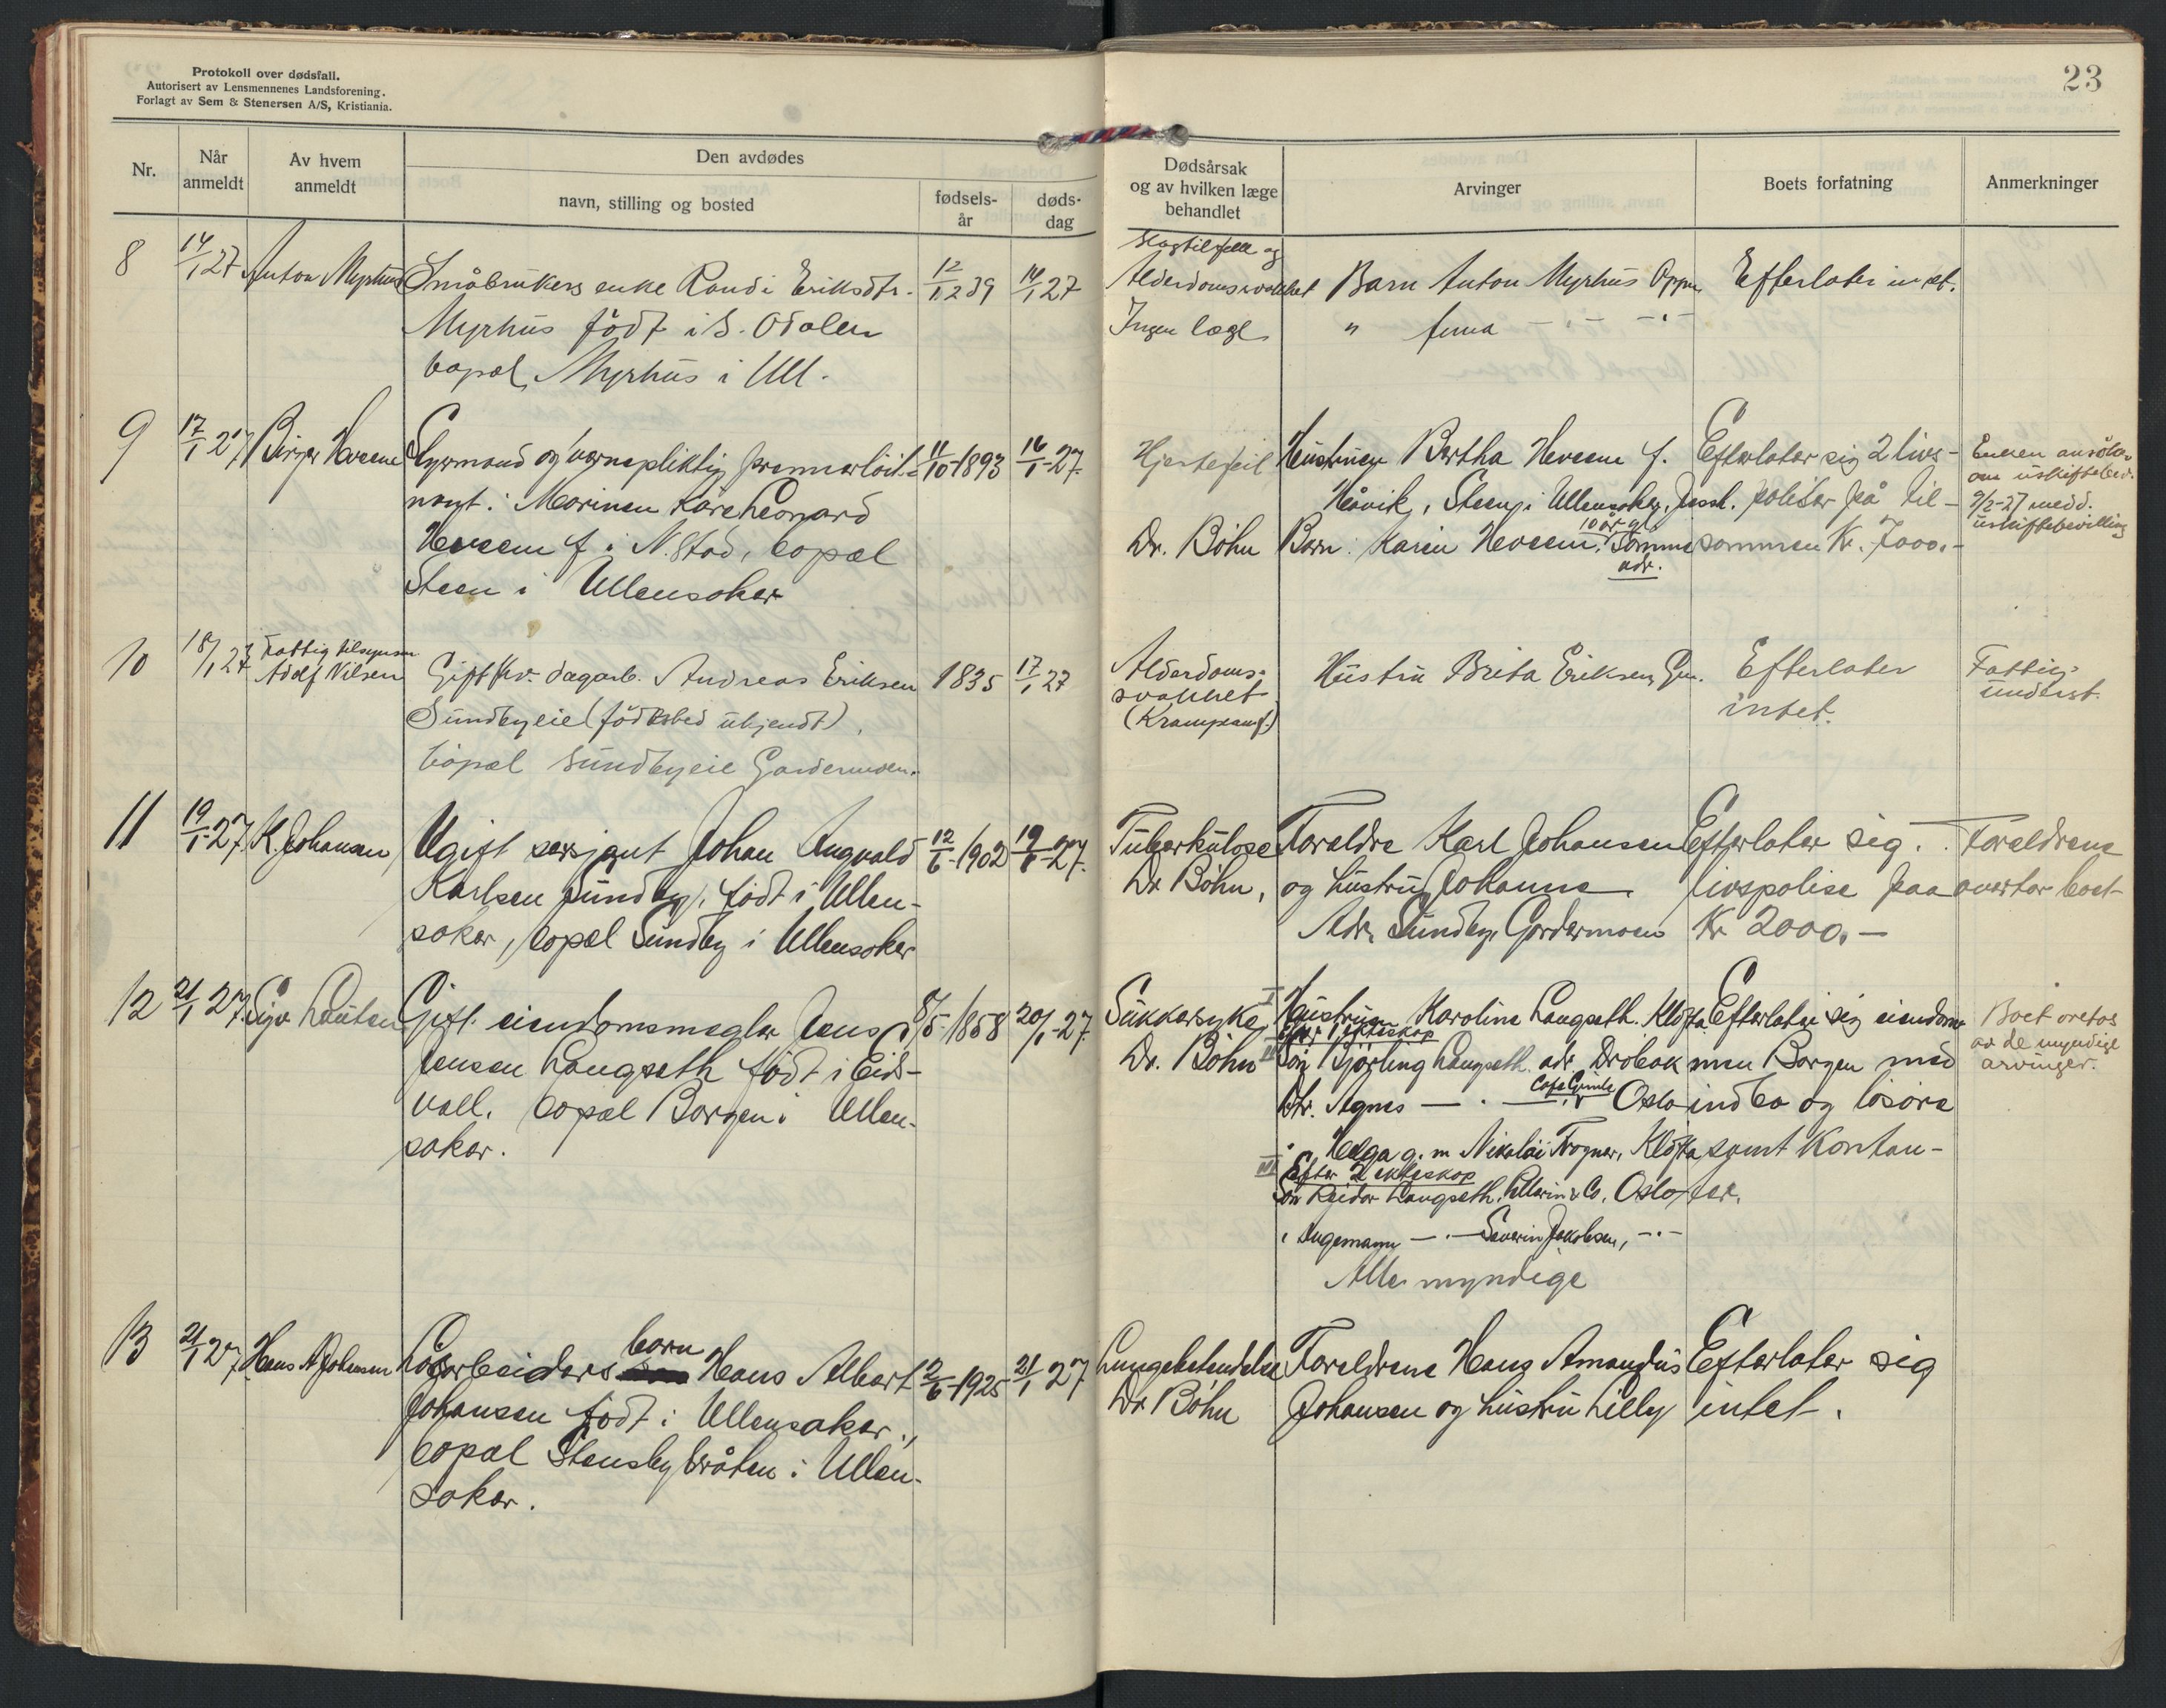 Protokoll over dødsfall.
Autorisert av Lensmennenes Landsforening.
Forlagt av Sem & Stenersen A/S, Kristiania.
23
Nr.
Når anmeldt
Av hvem anmeldt
Den avdødes
navn, stilling og bosted
fødsels-år
døds-dag
Dødsårsak og av hvilken læge behandlet
Arvinger
Boets forfatning
Anmerkninger
8
14/1 27
Anton Myrhus
Småbrukers enke Randi Eriksdtr.
Myrhus född i S. Odalen
bopæl Myrhus i Ull.
12/12 39
14/1 27
Slagtilfelle og
Alderdomssvakhet
Ingen læge
Barn Anton Myrhus Opp.
" Anna — " — — " —
Efterlater intet.
9
17/1 27
Birger Heveem
Styrmand og vernepliktig premierlöit-
nant i Marinen Kåre Leonard
Heveem f. i N.Stod, bopæl
Steen i Ullensaker
11/10-1893
16/1-27.
Hjertefeil
Dr. Böhn
Hustruen Bertha Heveem f.
Håvik, Steen i Ullensaker, Jessh.
Barn: Karin Heveem. 10 år gl. Samme
adr.
Efterlater sig 2 livs-
poliser på til-
sammen Kr. 7000.-
Enken ansöker
om uskiftebev.
9/2-27 medd.
uskiftebevilling
10
18/1 27
Fattigtilsynsm
Adolf Nilsen
Gift fhv. dagarb. Andreas Eriksen
Sundbyeie (födested ukjendt).
bopæl Sundbyeie Gardermoen.
1835
17/1 27
Alderdoms-
svakhet
(Krampeanf.)
Hustru Brita Eriksen, Gm.
Efterlater
intet.
Fattig-
underst.
11
19/1-27
K. Johansen
Ugift sersjant Johan Ingvald
Karlsen Sundby, födt i Ullen-
saker, bopæl Sundby i Ullensaker
12/6-1902
19/1-27.
Tuberkulose
Dr. Böhn,
Foreldre Karl Johansen
og hustru Johanne.
Adr. Sundby, Gardermoen
Efterlater sig.
livspolise paa
Kr 2000.—
Foreldrene
overtar boet
12
21/1 27.
Sigv Lauten
Gift. eiendomsmegler Jens
Jensen Langseth födt i Eids-
voll. bopæl Borgen i Ullen-
saker.
8/5-1858
20/1-27.
Sukkersyke
Dr. Böhn
I Hustruen Karoline Langseth. Klöfta
Efter 1 ekteskap
II Sön Hjörling Langseth. adr. Dröbak
Dtr. Agnes — . — Oslo
" Helga g. m Nikolai Trogner, Klöfta
III Efter 2 ekteskap
Sön Reidar Langseth, & Co. Oslo
" Ingemann — . — Severin Jakobsen, — . —
Alle myndige
Efterlater sig eiendom-
men Borgen med
indbo og lösöre
samt Kontan-
ter.
Boet overtas
av de myndige
arvinger.
13
21/1 27.
Hans A Johansen
Lösarbeiders barn Hans Albert
Johansen födt i Ullensaker.,
bopæl Stensbybråten i Ullen-
saker.
2/6-1925
21/1 27
Lungebetendelse
Dr. Böhn
Foreldrene Hans Amandus
Johansen og hustru Lilly
Efterlater sig
intet.